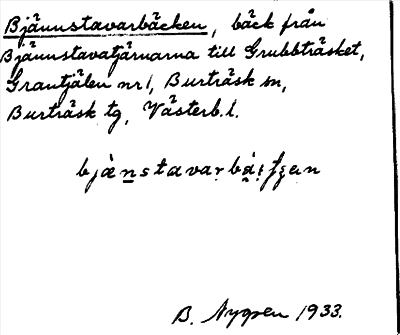 Bjännstavarbäcken, bäck från
Bjännstavatjärnarna till Grubbträsket,
Grantjälen nr 1, Burträsk sn,
Burträsk tg, Västerb. l.
B. Nygren 1933.